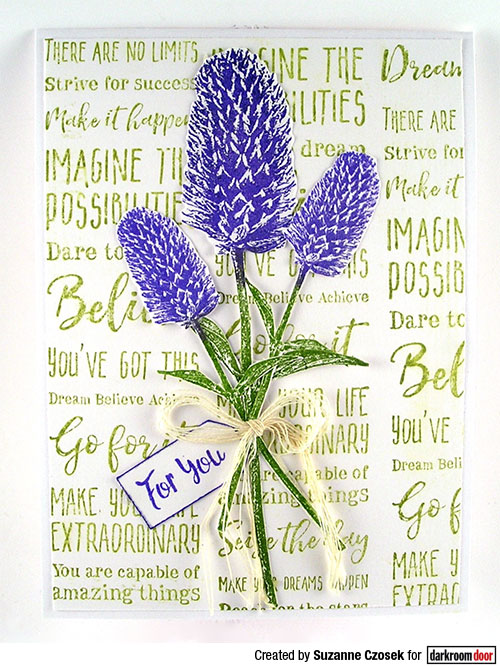 THERE ARE NO LIMITS
Strive for success
Make it happen
IMAGINE THE
POSSIBILITIES
Dare to
Believe
YOU'VE GOT THIS
Dream Believe Achieve
Go for it
MAKE YOUR LIFE
EXTRAORDINARY
You are capable of
amazing things
IMAGINE THE
dream
YOU'VE GOT THIS
Dream Believe Achieve
Go for it
MAKE YOUR LIFE
EXTRAORDINARY
are capable of
amazing things
Seize the Day
MAKE YOUR DREAMS HAPPEN
Reach for the stars
Dream
THERE ARE
Strive for
Make it
IMAGIN
POSSIB
Dare to
Bel
YOU'VE
Dream Beli
Go f
MAKE Y
EXTRAO
For You
Created by Suzanne Czosek for darkroomdoor